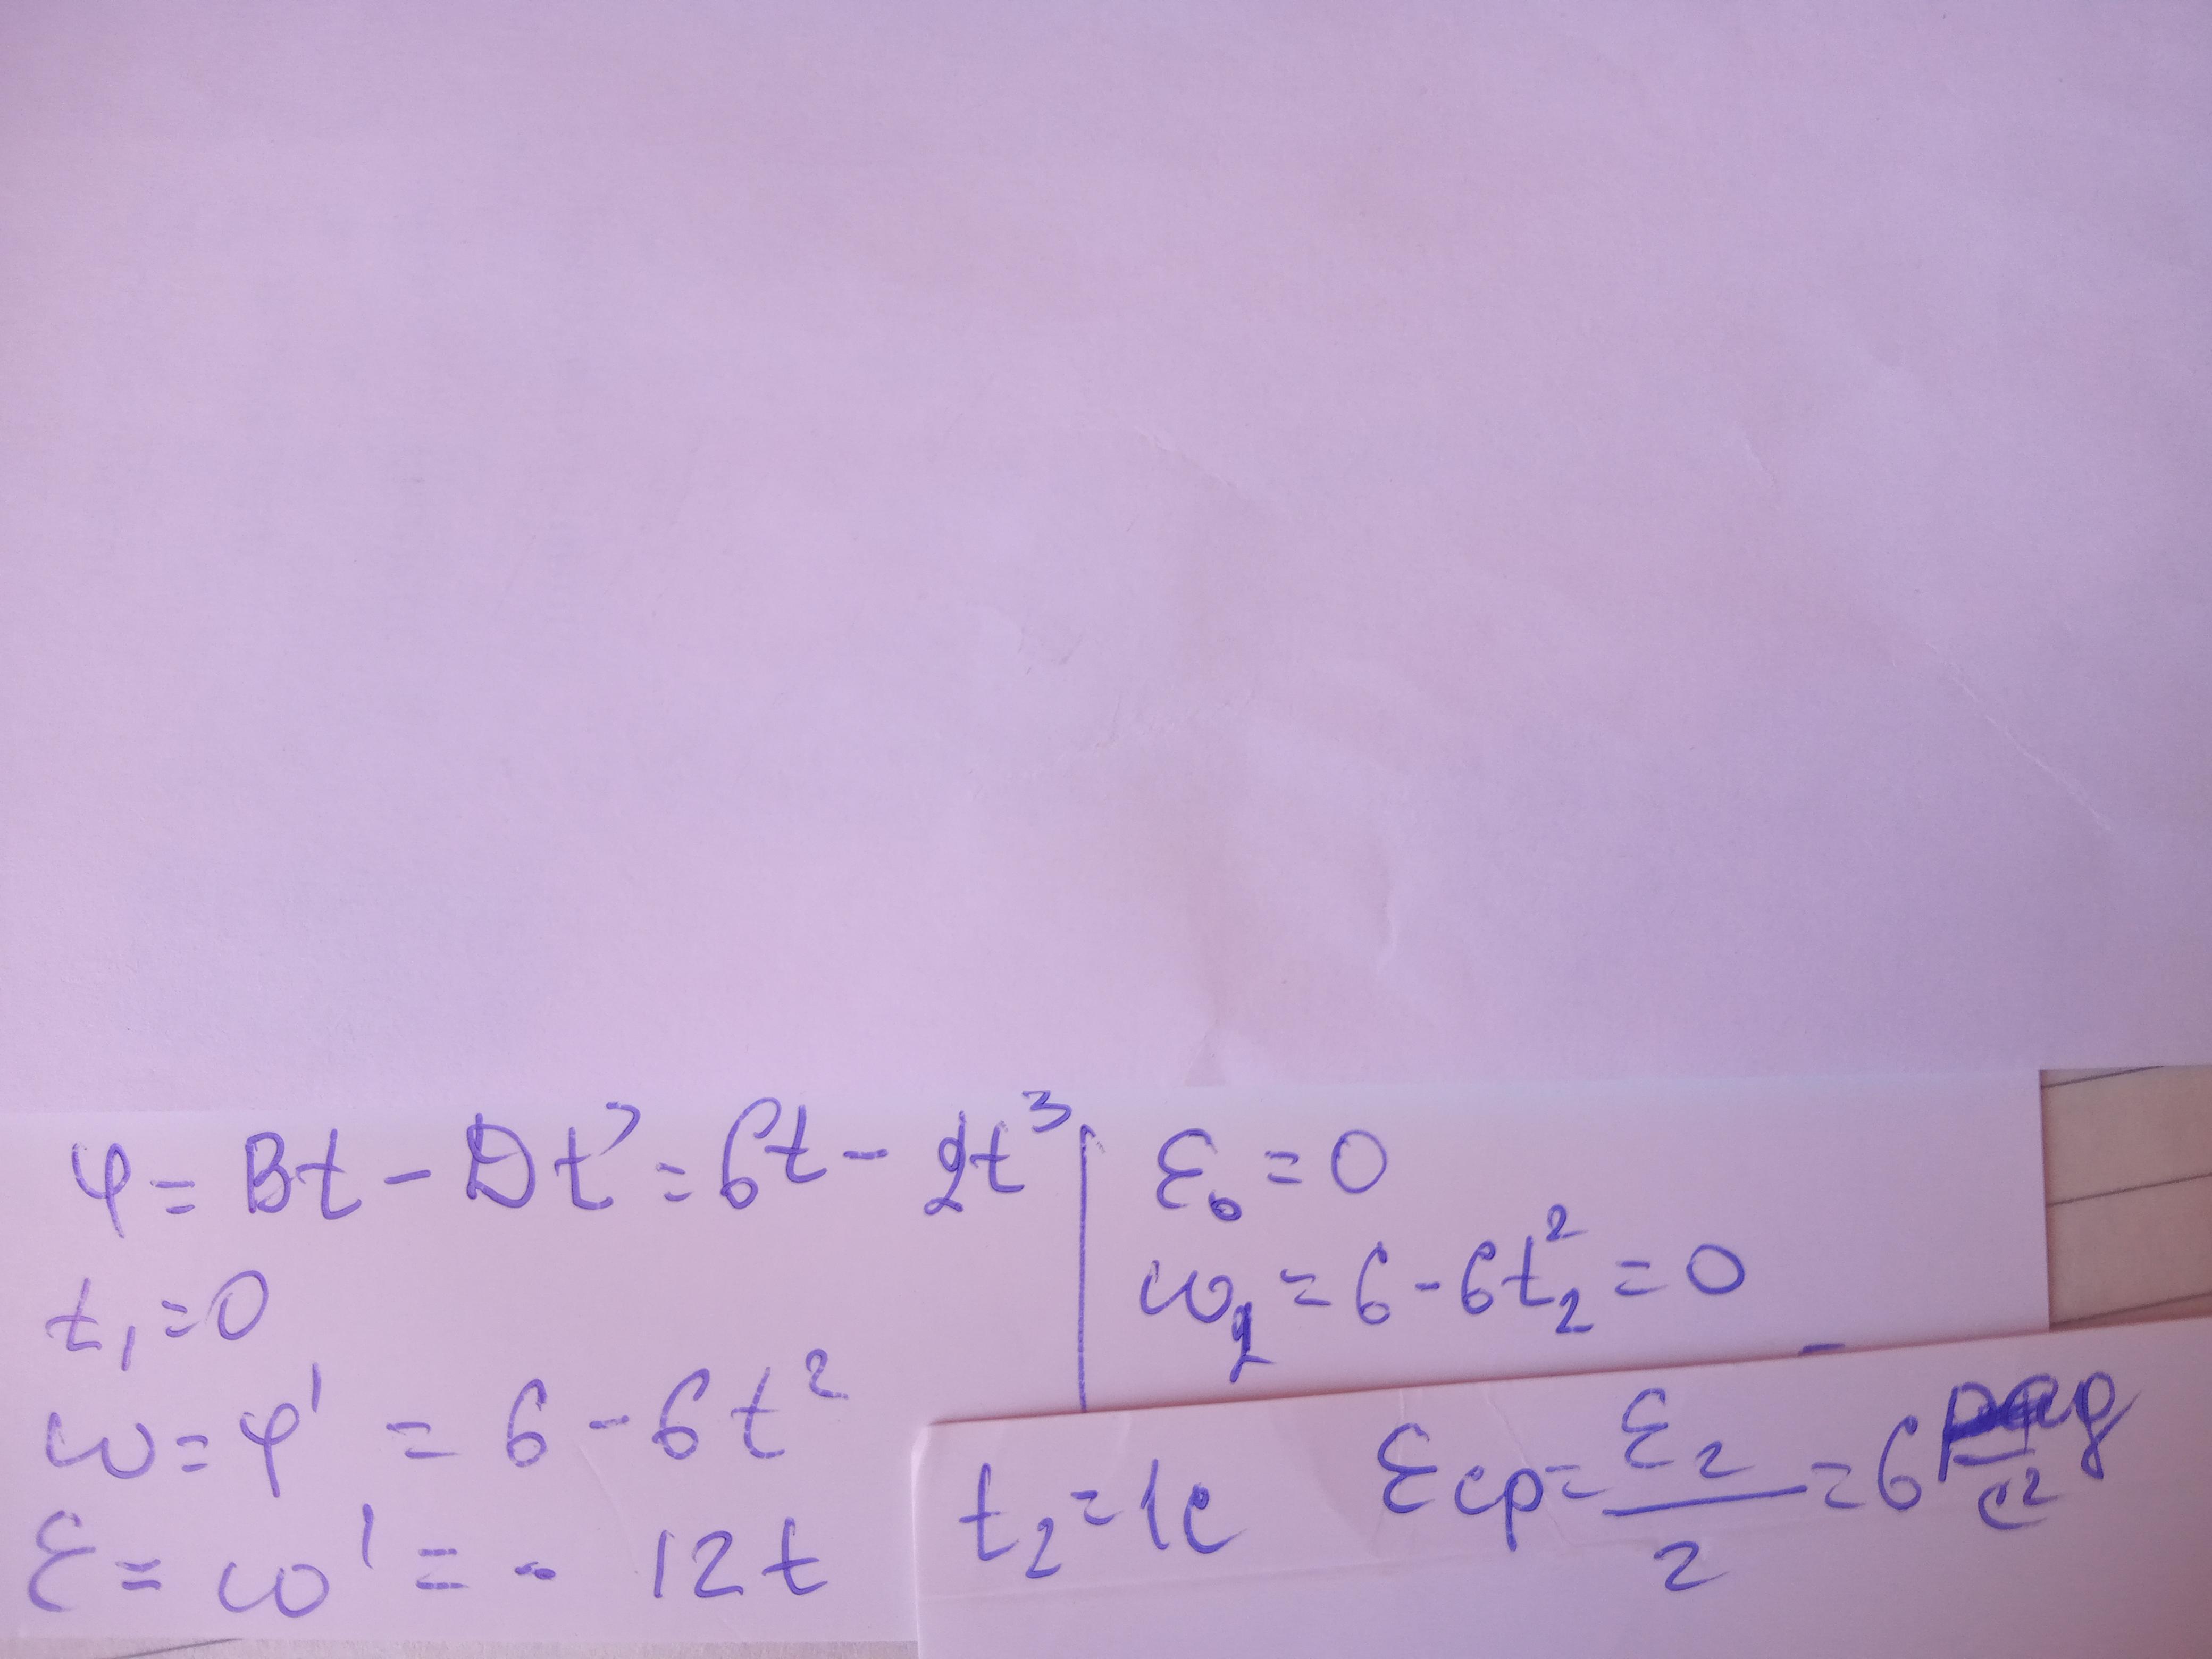 φ = Bt - Dt³ = 6t - 2t³
t₁ = 0
ω = φ' = 6 - 6t²
ε = ω' = - 12t
ε₀ = 0
ω₂ = 6 - 6t₂² = 0
t₂ = 1c
εср = ε₂/2 = 6 рад/с²